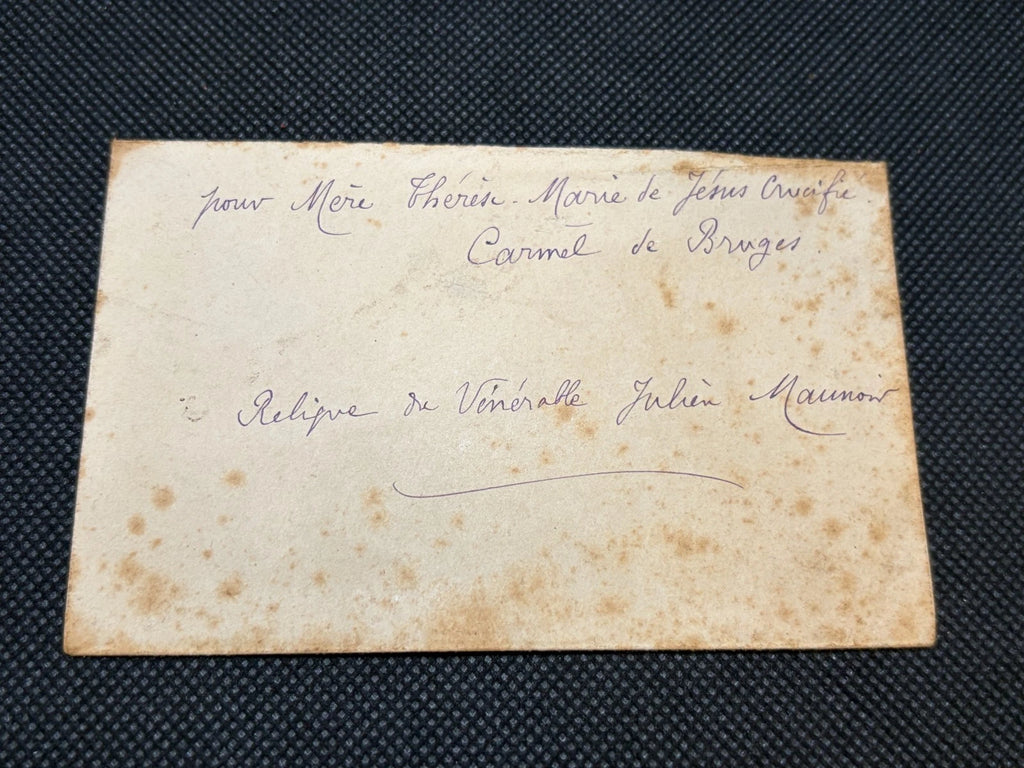 pour Mère Thérèse. Marie de Jésus Crucifié.
Carmel de Bruges.
Relique du Vénérable Julien Maunoir